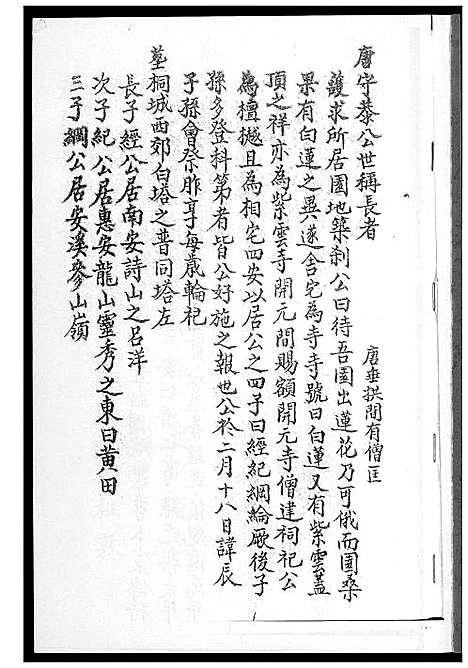 唐守恭公世稱長者　唐垂拱間有僧匡
護求所居園地築剎公曰待吾園出蓮花乃可俄而園桑
果有白蓮之異遂舍宅為寺寺號曰白蓮又有紫雲蓋
頂之祥亦為紫雲寺開元間賜額開元寺僧建祠祀公
為檀樾且為相宅四安以居公之四子曰經紀綱綸厥後子
孫多登科第者皆公好施之報也公於二月十八日諱辰
子孫會祭胙享每歲輪祀
墓桐城西郊白塔之普同塔左
長子經公居南安詩山之呂洋
次子紀公居惠安龍山靈秀之東曰黃田
三子綱公居安溪參山嶺